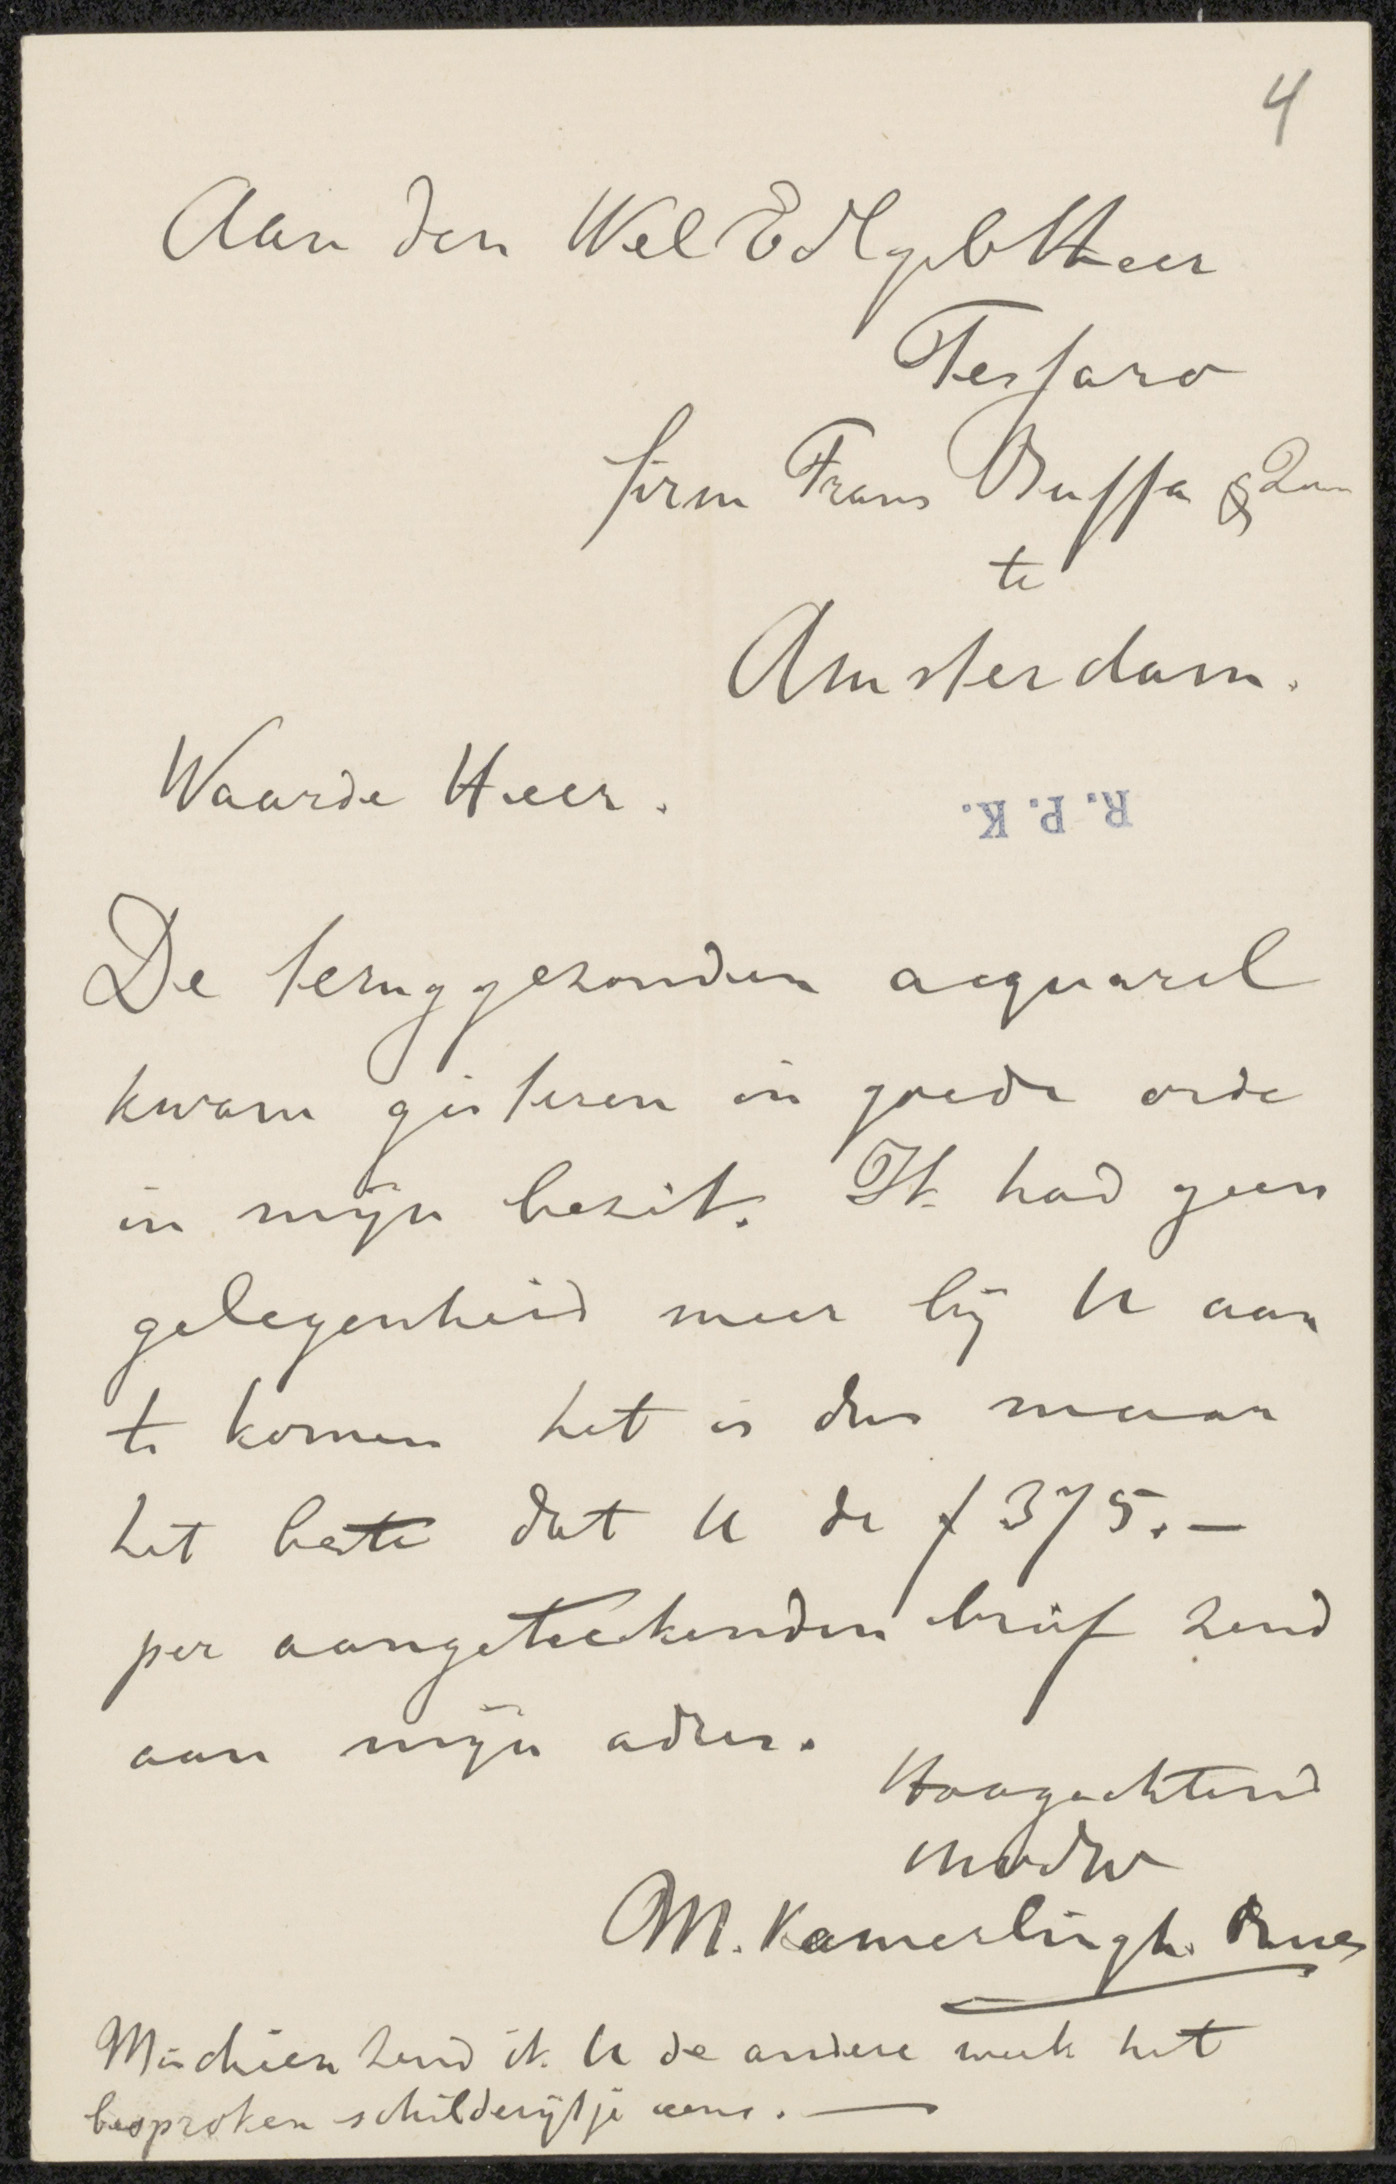 4
Aan den Wel Edlgeb Heer
Tessaro
firm Frans Buffa & Zon
te
Amsterdam.
Waarde Heer.
R. P. K.
De teruggezonden acquarel
kwam gisteren in goede orde
in mijn bezit. Ik had geen
gelegenheid meer bij U aan
te komen het is dus maar
het beste dat U de f 375.-
per aangeteekenden brief zend
aan mijn adres.
Hoogachtend
M. Kamerlingh. Onnes
Misschien zend ik U de andere week het
besproken schilderijtje eens. —